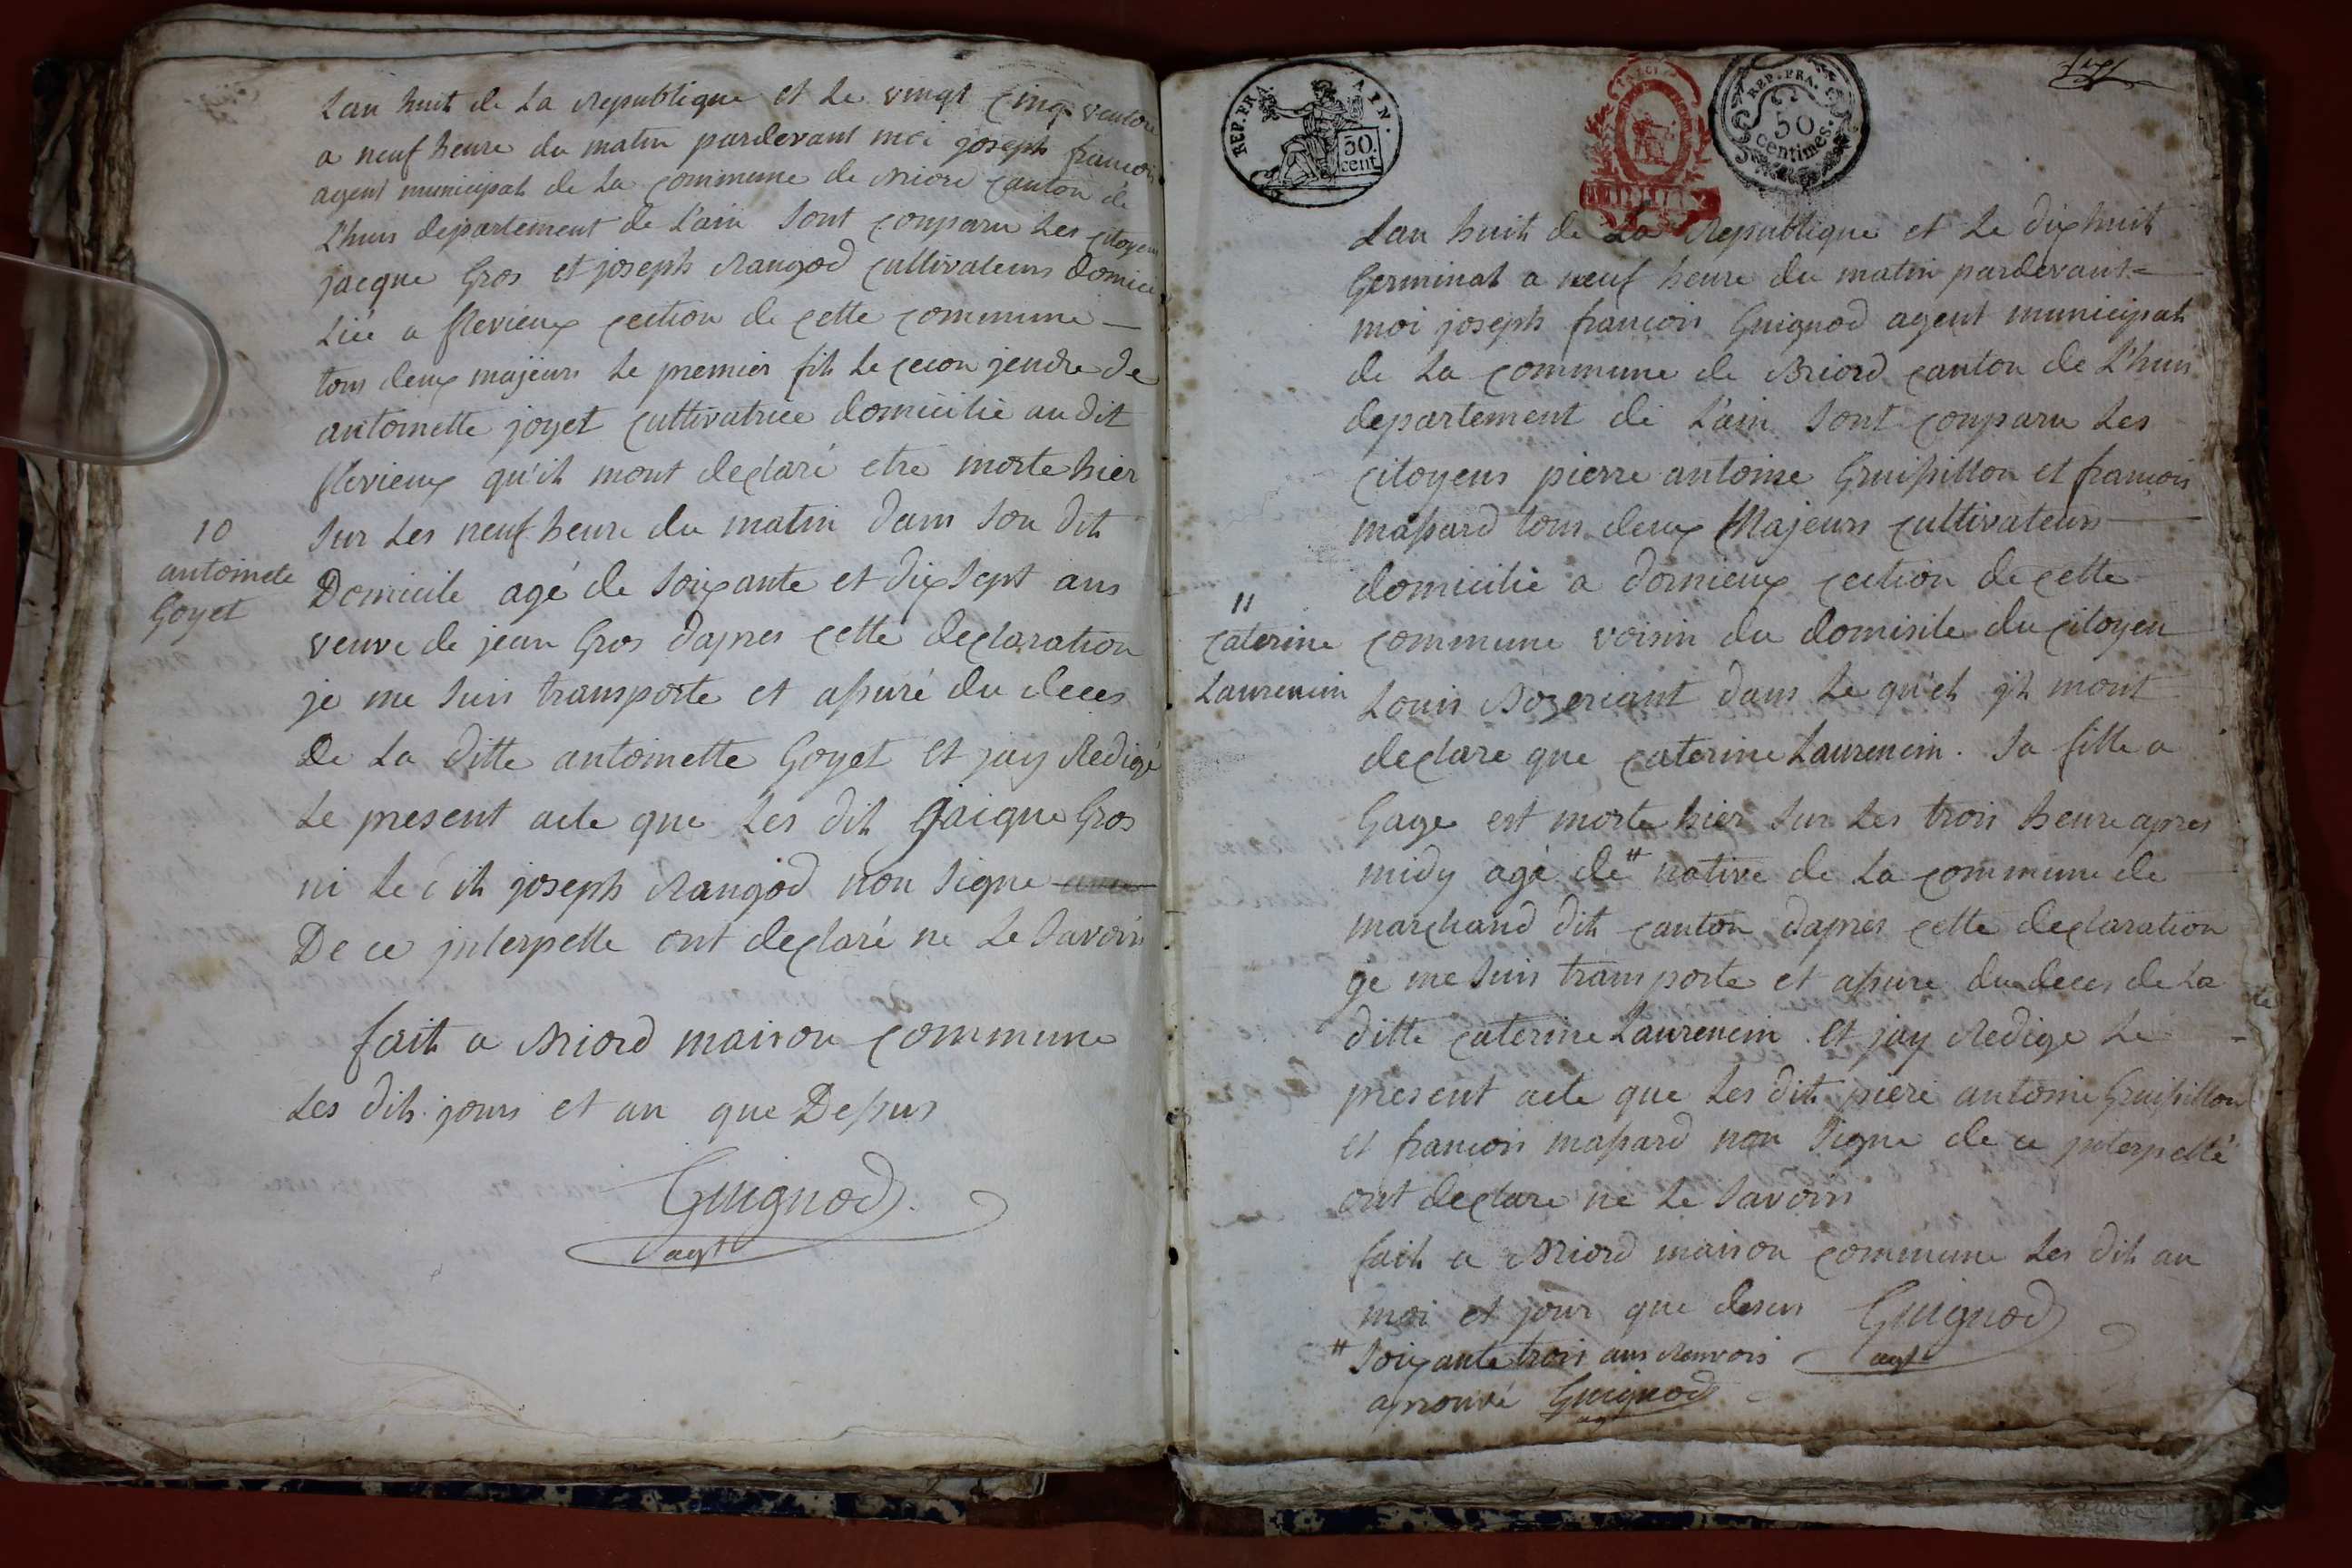 Lan huit de La Republique et Le vingt cinq ventose
a neuf heure du matin pardevant moi joseph francois
agent municipal de La commune de Briord canton de
L'huis departement de L'ain sont comparu Les citoyens
jacque Gros et joseph Rangod cultivateurs domici
Lié a flevieux cection de cette commune
tous deux majeurs Le premier fils Le cecon jendre de
antoinette joyet cultivatrice domicilié audit
flevieux qu'il mont declaré etre morte hier
10
sur Les neuf heure du matin dans son dit
antoinete
Domicile agé de soixante et dix sept ans
Goyet
veuve de jean Gros dapres cette declaration
je me suis transporté et assuré du deces
De La ditte antoinette Goyet et jay Redigé
Le present acte que Les dit Jaique Gros
ni Le dit joseph Rangod non signe
De ce interpelle ont declaré ne Le Savoir
fait a Briord maison commune
Les dit jours et an que Dessus
Guignod
agt
REP. FRA. AIN.
50.
cent
REP. FRA.
50
centimes.
Lan huit de La Republique et Le dixhuit
Germinal a neuf heure du matin pardevant
moi joseph francois Guignod agent municipal
de La commune de Briord canton de L'huis
departement de L'ain sont comparu Les
citoyens pierre antoine Gruissillon et francois
massard tous deux Majeurs cultivateurs
domicilié a dornieux cection de cette
11
caterine commune voisin du domisile du citoyen
Laurencin Louis Bozeriant dans Le qu'el il mont
declare que caterine Laurencin. sa fille a
Gage est morte hier sur Les trois heure apres
midy agé de # native de La commune de
marchand dit canton dapres cette declaration
je me suis transporté et assure du deces de La
ditte caterine Laurencin et jay Redige Le
present acte que Les dit piere antoine Gruissillon
et francois massard non signe de ce interpellé
ont declare ne Le Savoir
fait a Briord maison commune Les dit an
moi et jour que desus Guignod
agt
# soixante trois ans Renvois
aprouvé Guignod
agt